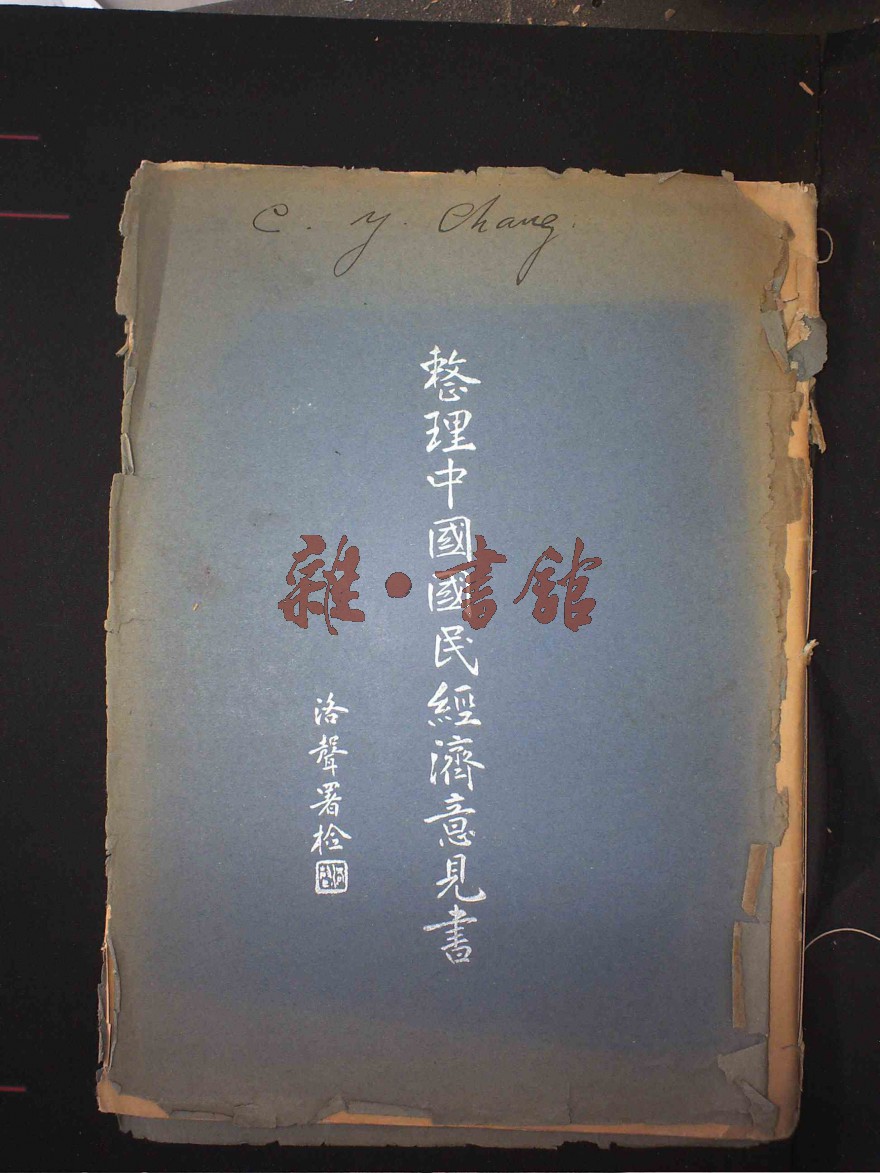 C. Y. Chang.
整理中國國民經濟意見書
洛聲署检
雜·書館